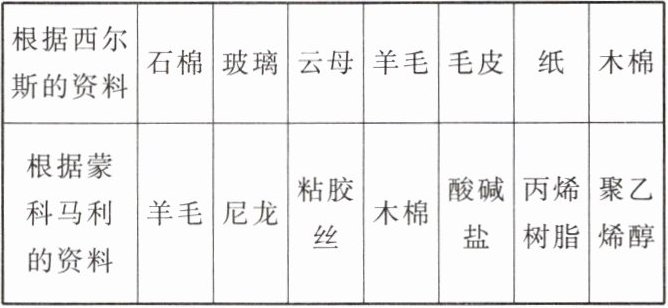 根据西尔
斯的资料
石棉
玻璃
云母
羊毛
毛皮
纸
木棉
根据蒙
科马利
的资料
羊毛
尼龙
粘胶
丝
木棉
酸碱
盐
丙烯
树脂
聚乙
烯醇